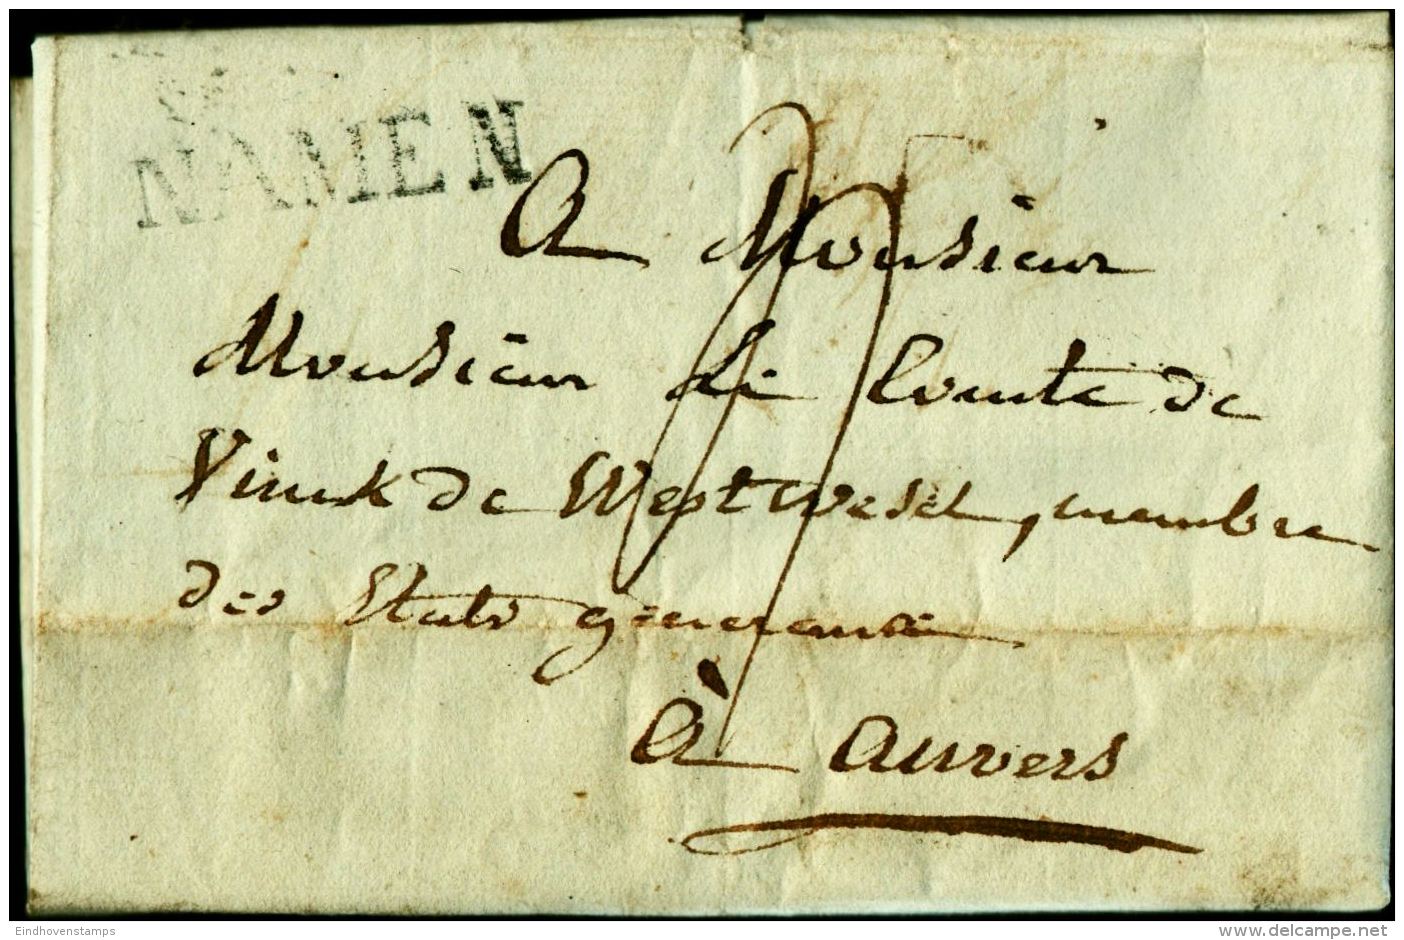 NAMEN
A Monsieur
Monsieur Le Comte de
Vinck de Westwesel, membre
des Etats generaux
À anvers
Eindhovenstamps
delcampe.net